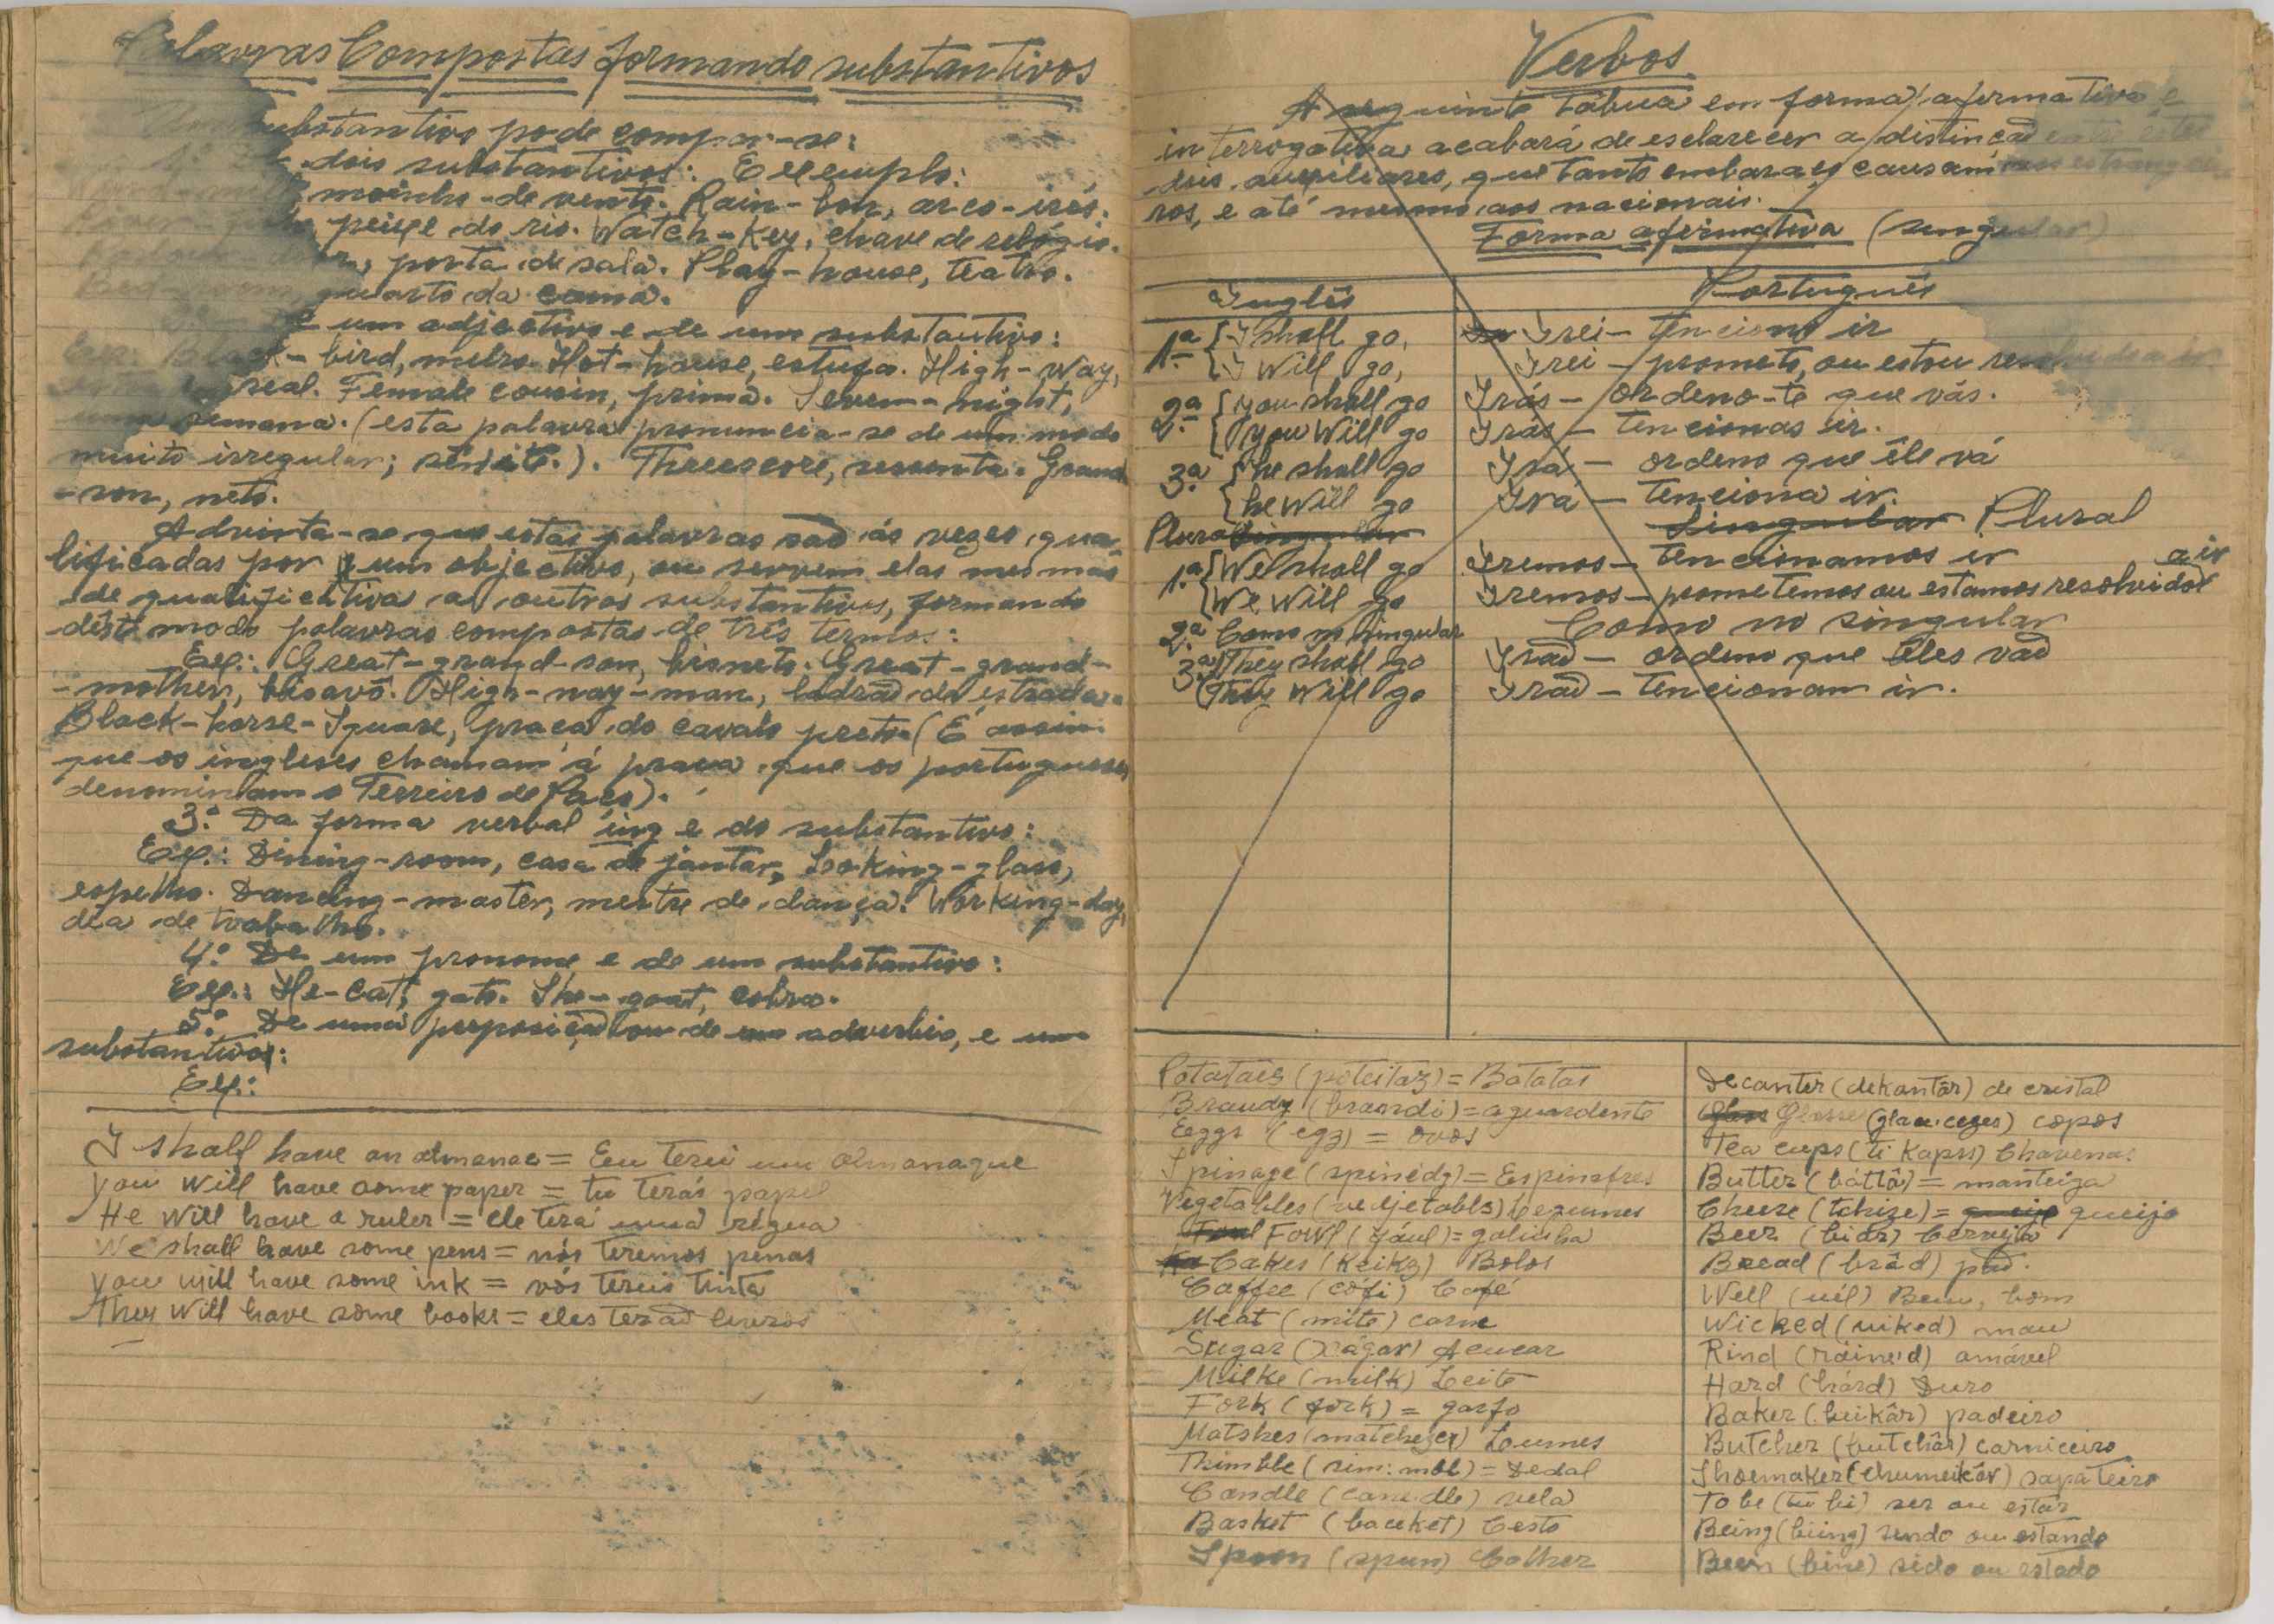 Palavras Compostas formando substantivos
substantivo pode compor-se:
dois substantivos: Exemplo:
moinho-de vento. Rain-bow, arco-irés.
peixe do rio. Watch-Key, chave de relógio.
porta de sala. Play-house, teatro.
Bed-room, quarto da cama.
um adjectivo e de um substantivo:
Black-bird, melro. Hot-house, estufa. High-Way,
real. Female cousin, prima. Seven-night,
uma semana. (esta palavra pronuncia-se de um modo
muito irregular; ). Threescore, sessenta. Grand
-son, neto.
Advirta-se que estas palavras são ás vezes qua-
lificadas por um objectivo, ou servem elas mesmas
de qualificativa a outros substantivos, formando
dêste modo palavras compostas de três termos:
Ex.: Great-grand-son, bisneto. Great-grand-
-mother, bisavó. High-way-man, ladrão de estrada.
Black-horse-Square, praça do cavalo preto. (É assim
que os ingleses chamam á praça que os portugueses
denominam o Terreiro de Paço).
3.º Da forma verbal ing e do substantivo:
Ex.: Dining-room, casa de jantar, Looking-glass,
espelho. Dancing-master, mestre de dança. Working-day,
dia de trabalho.
4.º De um pronome e de um substantivo:
Ex.: He-cat, gato. She-goat, cabra.
5.º De uma preposição ou de um adverbio, e um
substantivo:
Ex:
I shall have an almanac = Eu terei um almanaque
you will have some paper = tu terás papel
He will have a ruler = ele terá uma régua
We shall have some pens = nós teremos penas
you will have some ink = vós tereis tinta
They will have some books = eles terão livros
Verbos
A seguinte tábua em forma afirmativa e
interrogativa acabará de esclarecer a distinção entre estes
dois auxiliares, que tanto embaraço causam aos estrangei-
ros, e até mesmo aos nacionais.
Forma afirmativa (singular)
Inglês Português
1.ª { I shall go, Irei - tenciono ir
{ I Will go, Irei - prometo, ou estou resolvido a ir
2.ª { you shall go Irás - ordeno-te que vás.
{ you Will go Irás - tencionas ir.
3.ª { he shall go Irá - ordeno que êle vá
{ he Will go Irá - tenciona ir.
Plural Singular Singular Plural
1.ª { We shall go Iremos - tencionamos ir
{ We Will go Iremos - prometemos ou estamos resolvidos a ir
2.ª Como no singular Como no singular
3.ª { They shall go Irão - ordeno que êles vão
{ They Will go Irão - tencionam ir.
Potatais (poteitaz) = Batatas
Brandy (brandi) = aguardente
Eeggs (egz) = ovos
Spinage (spinedg) = Espinafres
Vegetables (vedjetabls) Legumes
Fowl (fául) = galinha
Cakes (Keikz) Bolos
Caffee (cófi) Café
Meat (mite) carne
Sugar (xágar) Açucar
Milke (milk) Leite
Fork (fork) = garfo
Matshes (matchezer) Lumes
Thimble (sim:mbl) = Dedal
Candle (cane.dle) vela
Basket (baceket) Cesto
Spoon (spun) Colher
Decanter (dekantâr) de cristal
Glass Glasse (glace.ceges) copos
Tea cups (ti Kaprs) Chavenas
Butter (báttâr) = manteiga
Cheese (tchize) = queijo queijo
Beer (biâr) Cerveja
Bread (bréd) pão.
Well (uél) Bem, bom
Wicked (uiked) mau
Rind (ráine'd) amável
Hard (hárd) Duro
Baker (beikâr) padeiro
Butcher (butchâr) carniceiro
Shoemaker (chumeikâr) sapateiro
To be (tu bi) ser ou estar
Being (biing) sendo ou estando
Been (bine) sido ou estado